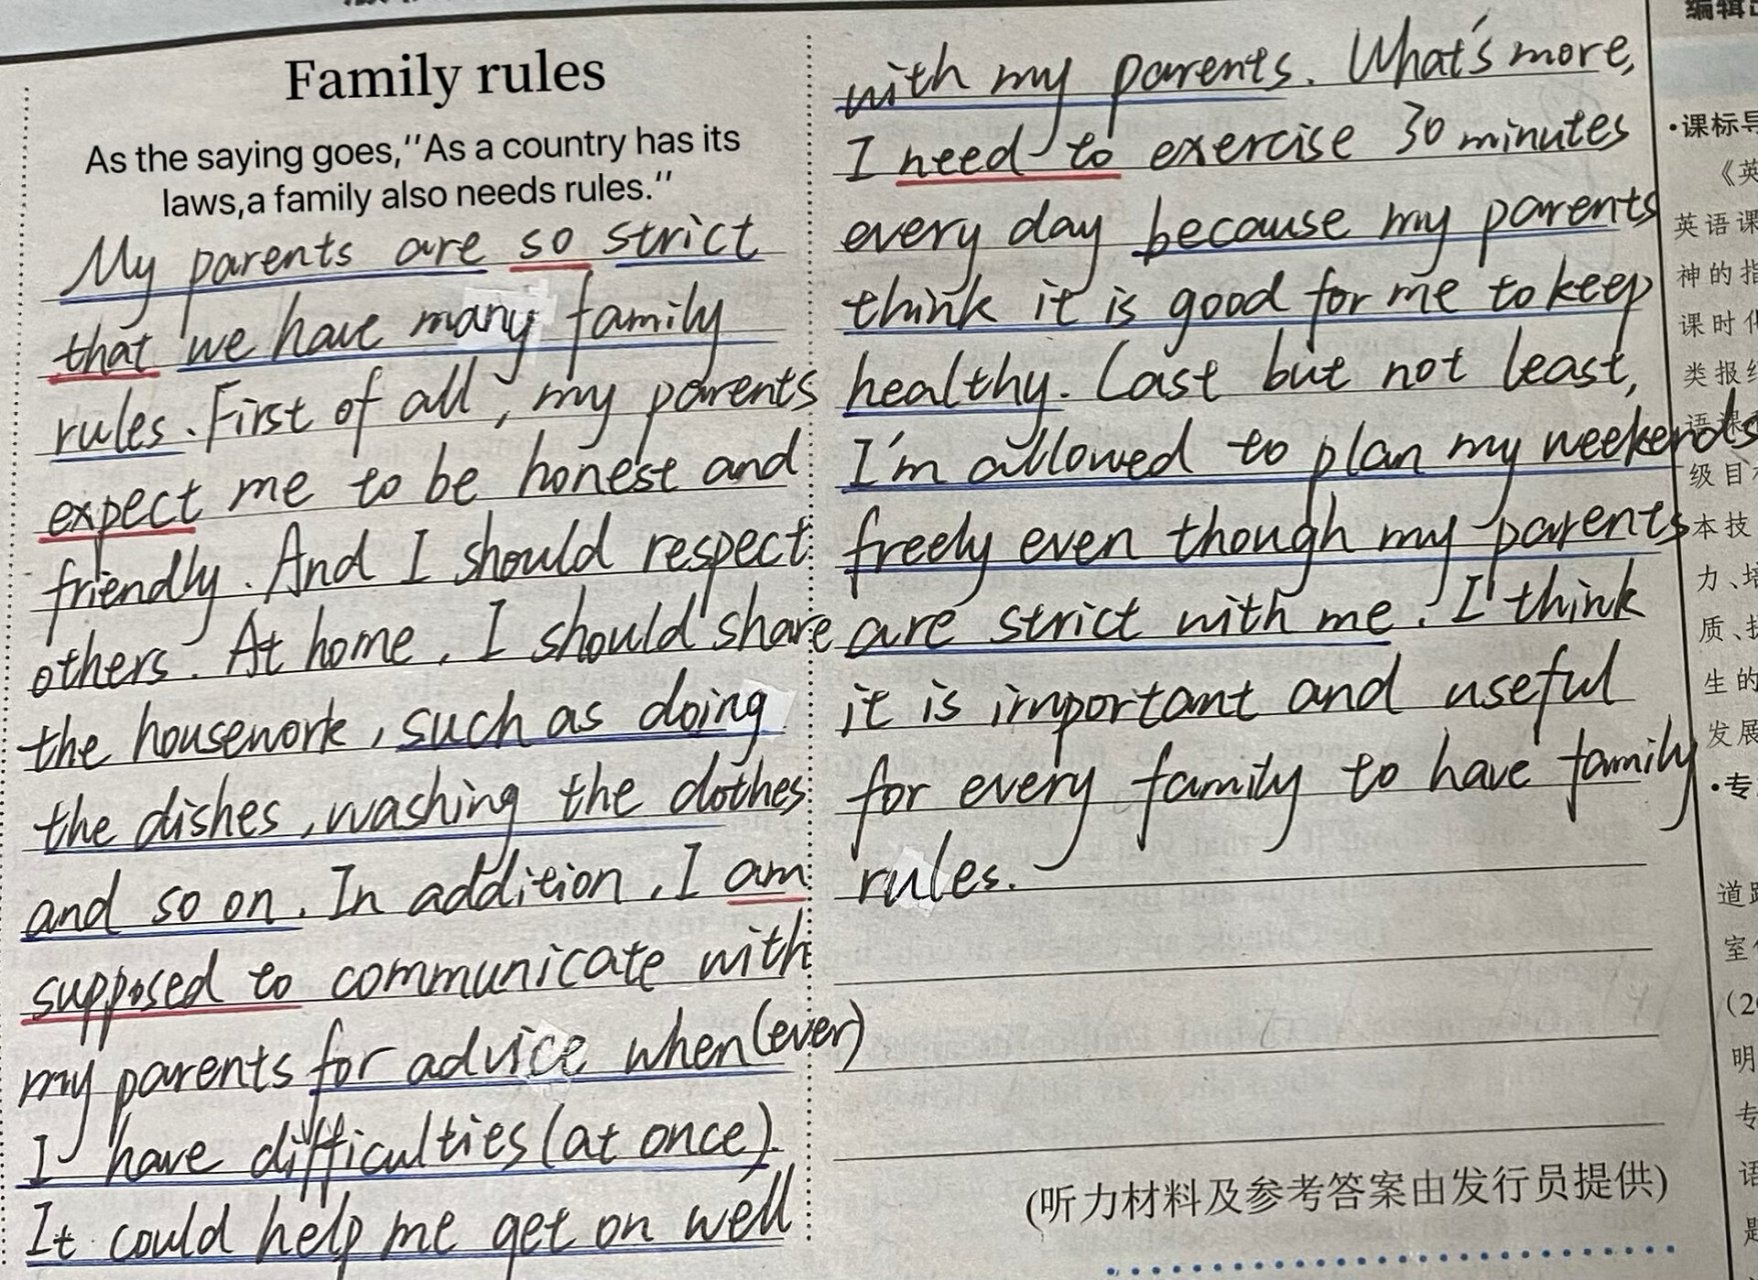 Family rules
As the saying goes,"As a country has its
laws,a family also needs rules."
My parents are so strict
that we have many family
rules. First of all, my parents
expect me to be honest and
friendly. And I should respect
others. At home, I should share
the housework, such as doing
the dishes, washing the clothes
and so on. In addition, I am
supposed to communicate with
my parents for advice when(ever)
I have difficulties (at once).
It could help me get on well
with my parents. What's more,
I need to exercise 30 minutes
every day because my parents
think it is good for me to keep
healthy. Last but not least,
I'm allowed to plan my weekends
freely even though my parents
are strict with me. I think
it is important and useful
for every family to have family
rules.
(听力材料及参考答案由发行员提供)
编辑
·课标导
《英
英语课
神的指
课时作
类报纟
语课
级目
本技
力、培
质、
生的
发展
·专
道路
室
(2
明
专
语
题